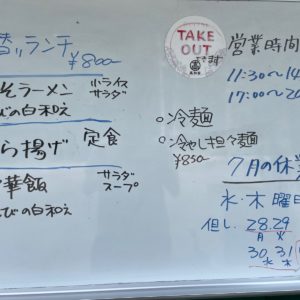 替りランチ
¥800
そラーメン 小ライス
サラダ
びの白和え
ら揚げ 定食
華飯 サラダ
スープ
びの白和え
TAKE
OUT
できます
営業時間
11:30〜14
17:00〜20
○冷麺
○冷やし担々麺
¥850
7月の休業
水・木曜日
但し 28.29
月 火
30.31
水 木